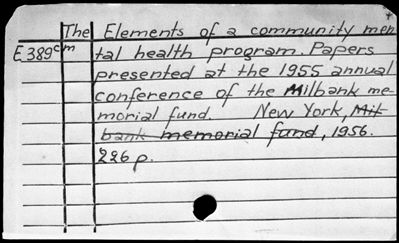 The Elements of a community men
E 389cm tal health program. Papers
presented at the 1955 annual
conference of the Milbank me-
morial fund. New York, Mil-
bank memorial fund, 1956.
226 p.